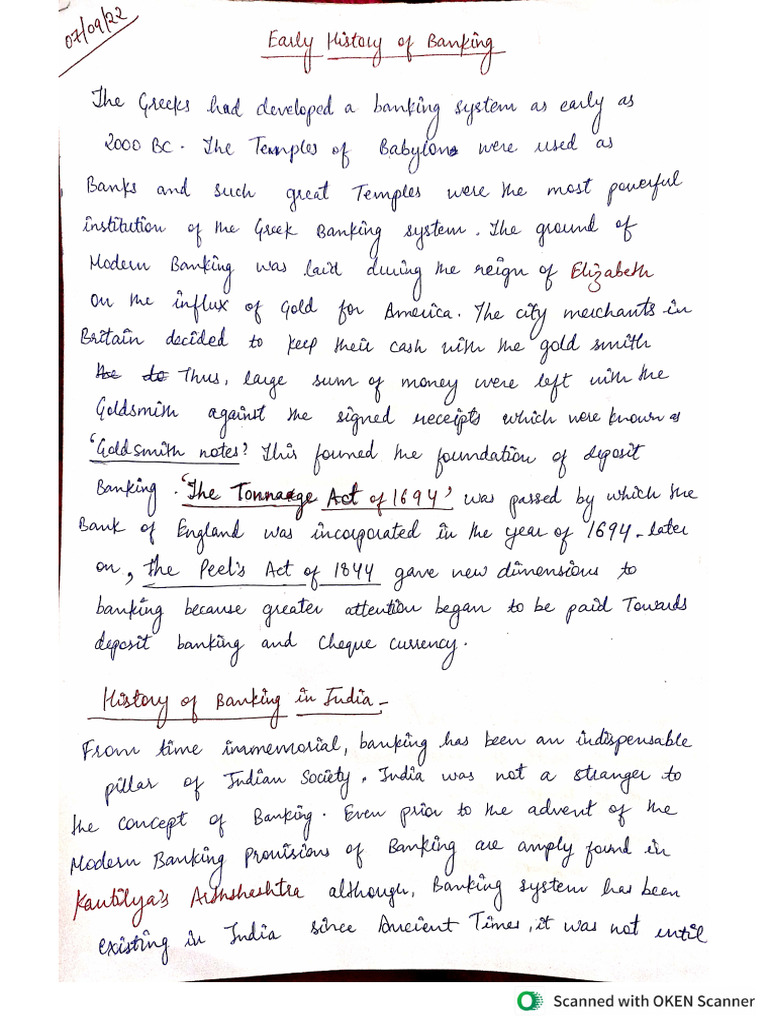 07/09/22
Early History of Banking
The Greeks had developed a banking system as early as
2000 BC. The Temples of Babylon were used as
Banks and such great Temples were the most powerful
institution of the Greek Banking system. The ground of
Modern Banking was laid during the reign of Elizabeth
on the influx of Gold for America. The city merchants in
Britain decided to keep their cash with the gold smith
the do Thus, large sum of money were left with the
Goldsmith against the signed receipts which were known as
'Goldsmith notes'. This formed the foundation of deposit
Banking. 'The Tonnage Act of 1694' was passed by which the
Bank of England was incorporated in the year of 1694. later
on, the Peel's Act of 1844 gave new dimensions to
banking because greater attention began to be paid Towards
deposit banking and Cheque currency.
History of Banking in India -
From time immemorial, banking has been an indispensable
pillar of Indian Society. India was not a stranger to
the concept of Banking. Even prior to the advent of the
Modern Banking Provisions of Banking are amply found in
Kautilya's Arthshashtra although, Banking system has been
existing in India since Ancient Times, it was not until
Scanned with OKEN Scanner